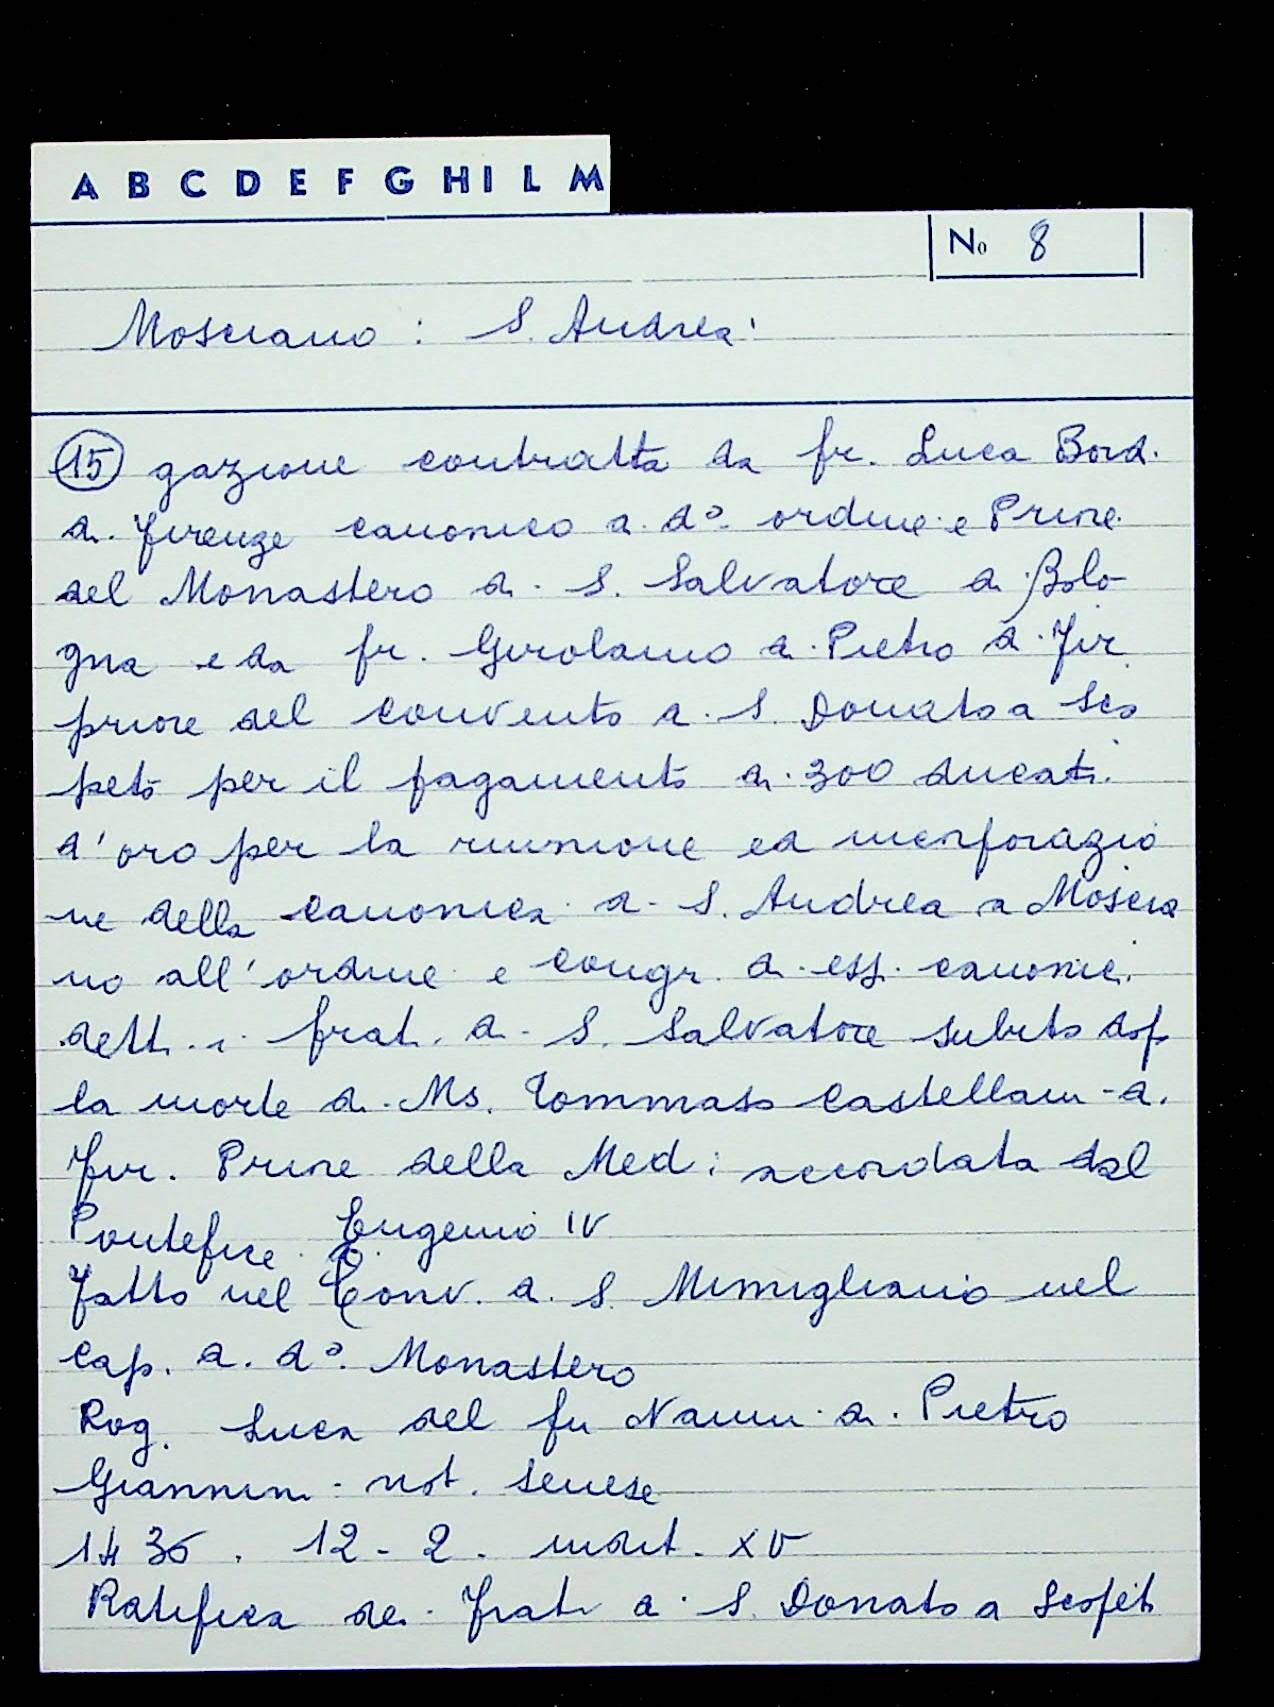 A B C D E F G H I L M
No 8
Mosciano : S. Andrea
15 gazione contratta da fr. Luca Bord.
di Firenze canonico di do. ordine e Priore
del Monastero di S. Salvatore di Bolo-
gna e da fr. Girolamo di Pietro di Fir
priore del convento di S. Donato a Sco
peto per il pagamento di 300 ducati
d'oro per la riunione ed incorporazio
ne della canonica di S. Andrea a Moscia
no all'ordine e congr. di essi canonici
detti i frati di S. Salvatore subito dop
la morte di Ms. Tommaso Castellani di
Fir. Priore della Med: accordata dal
Pontefice Eugenio IV
Fatto nel Conv. di S. Mimigliano nel
cap. di do. Monastero
Rog. Luca del fu Nanni di Pietro
Giannini not. senese
1436. 12 - 2. indit. XV
Ratifica dei Frati di S. Donato a Scopeto